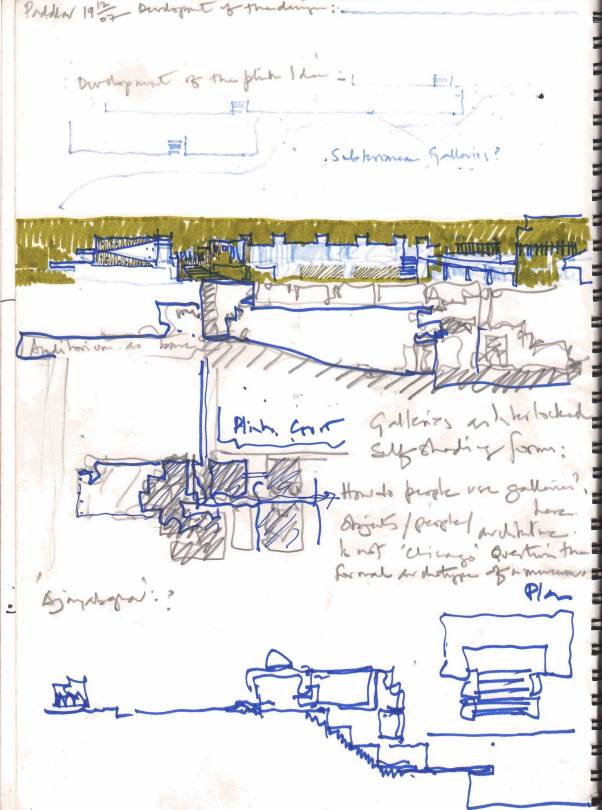 19 12/07 Development of the design:
Development of the plinth Idea -
Subterranean Galleries?
Auditorium as
Plinth Court
Galleries as Interlocked
Self-shading forms:
How do people use galleries,
here.
Objects/people/architecture.
Is not 'Chicago' Question the
formal archetype of a museum
?
Plan